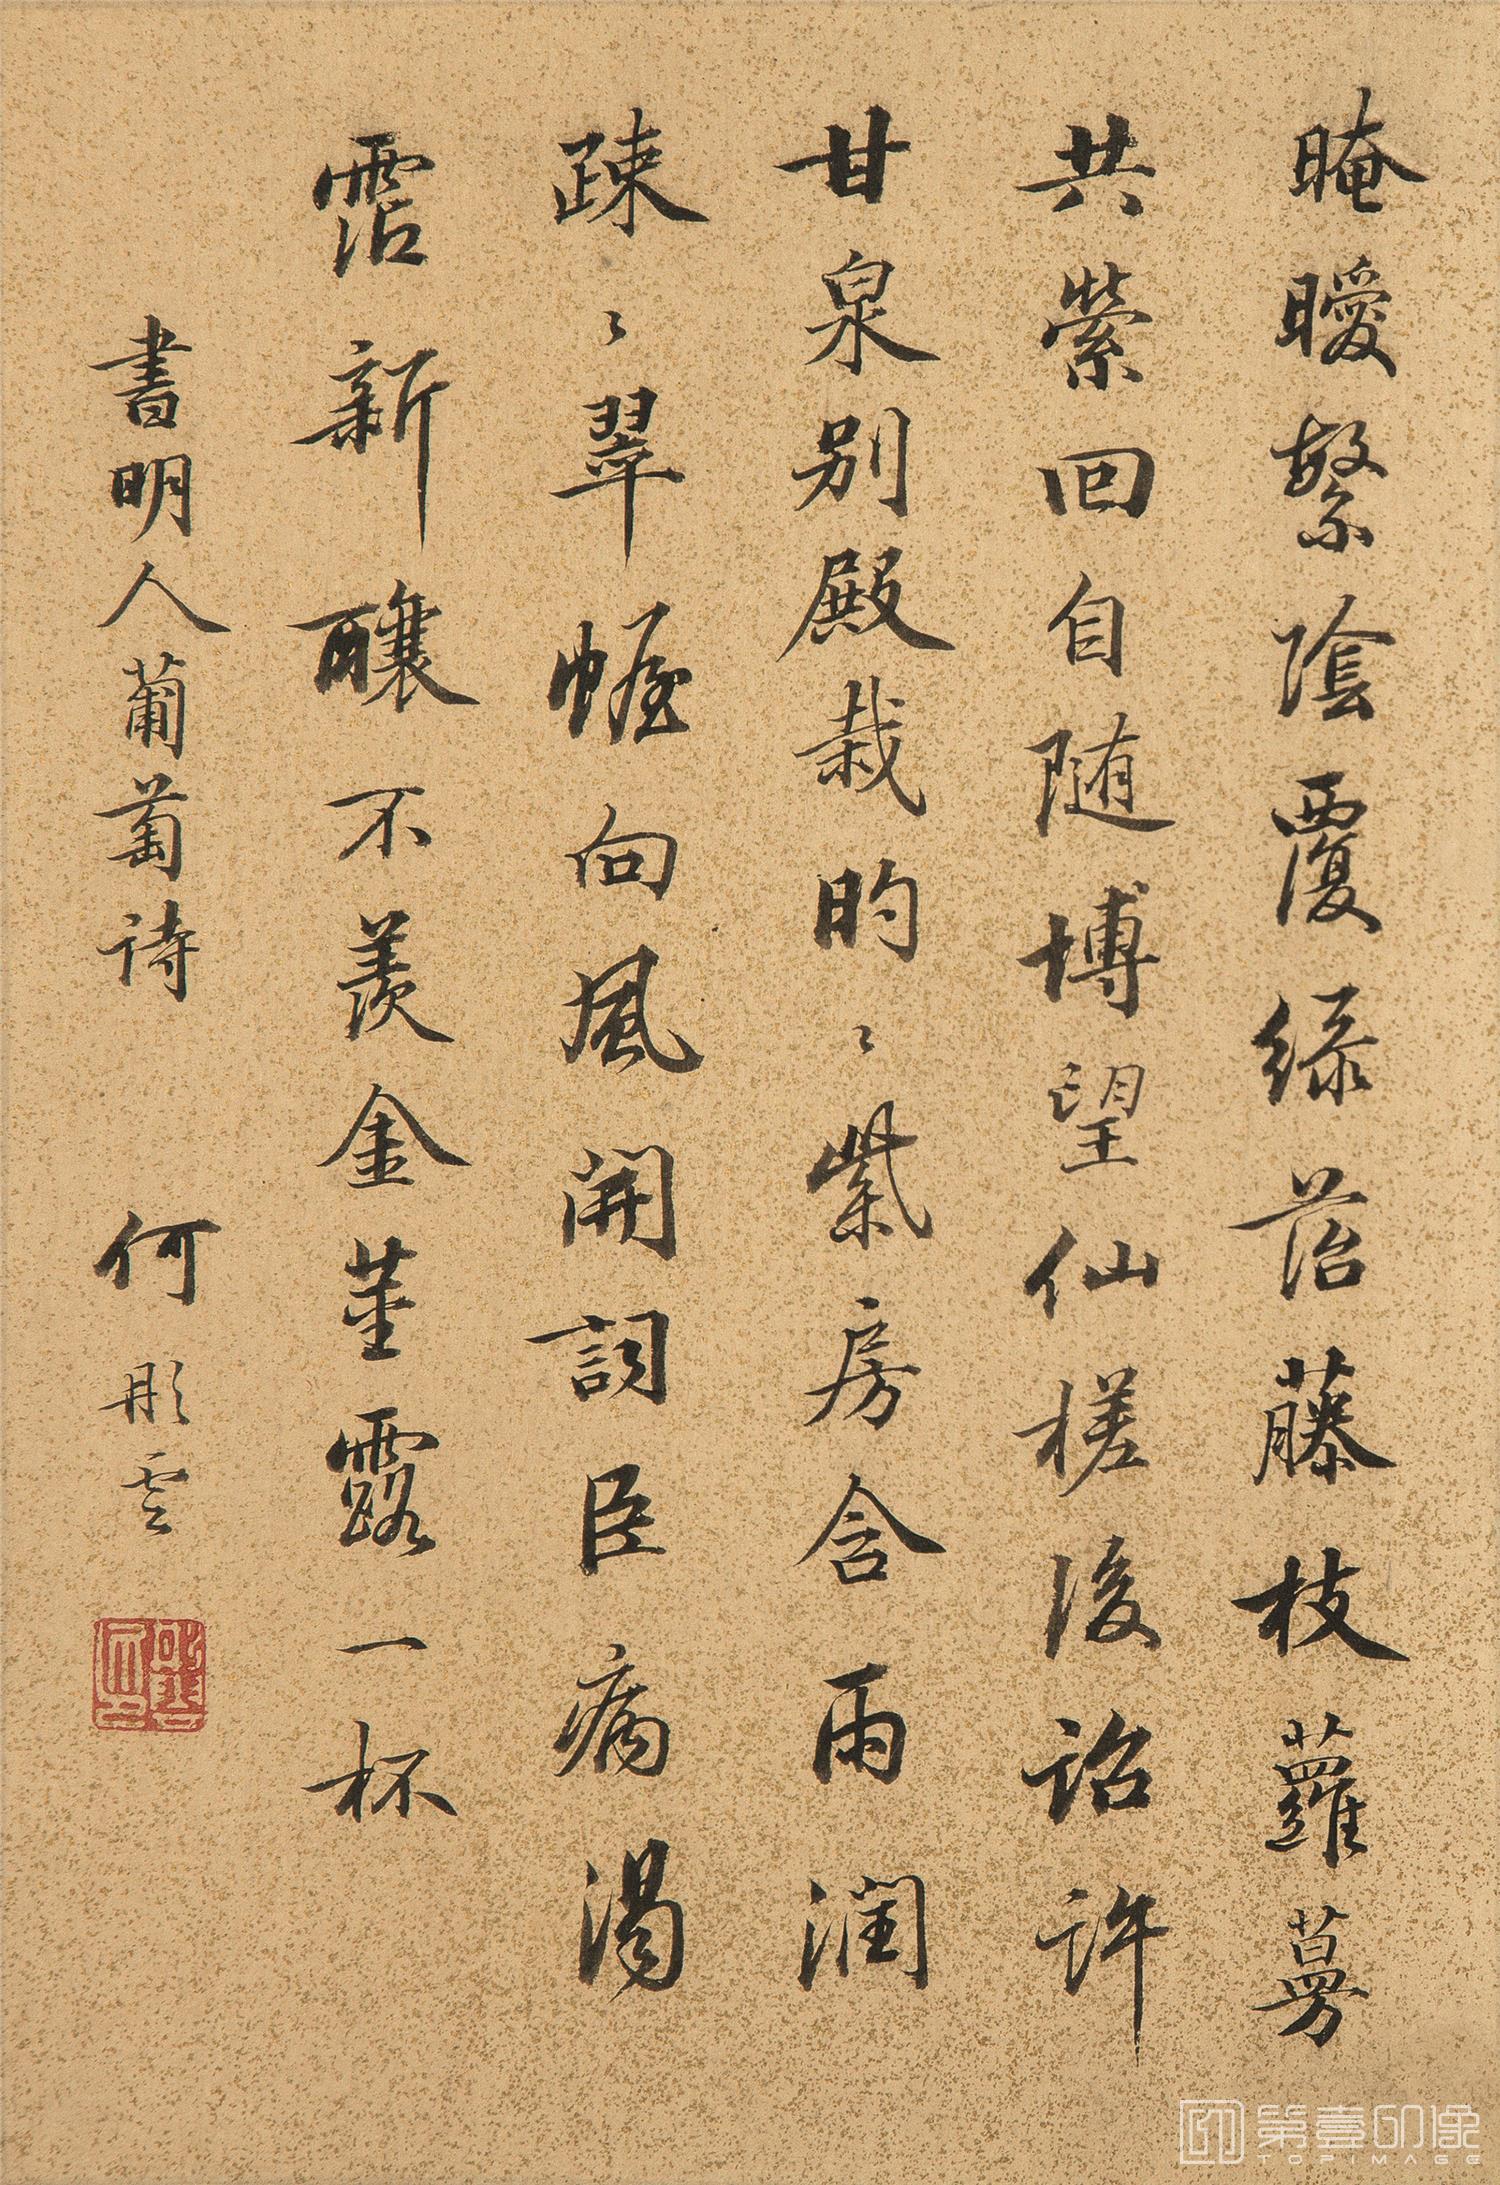 晻曖繁陰覆綠苔藤枝蘿蔓
共縈回自随博望仙槎後詔許
甘泉别殿栽昀〻紫房含雨潤
疎〻翠幄向風開詞臣病渴
霑新釀不羨金莖露一杯
書明人葡萄诗 何彤雲
第壹印像
TOPIMAGE